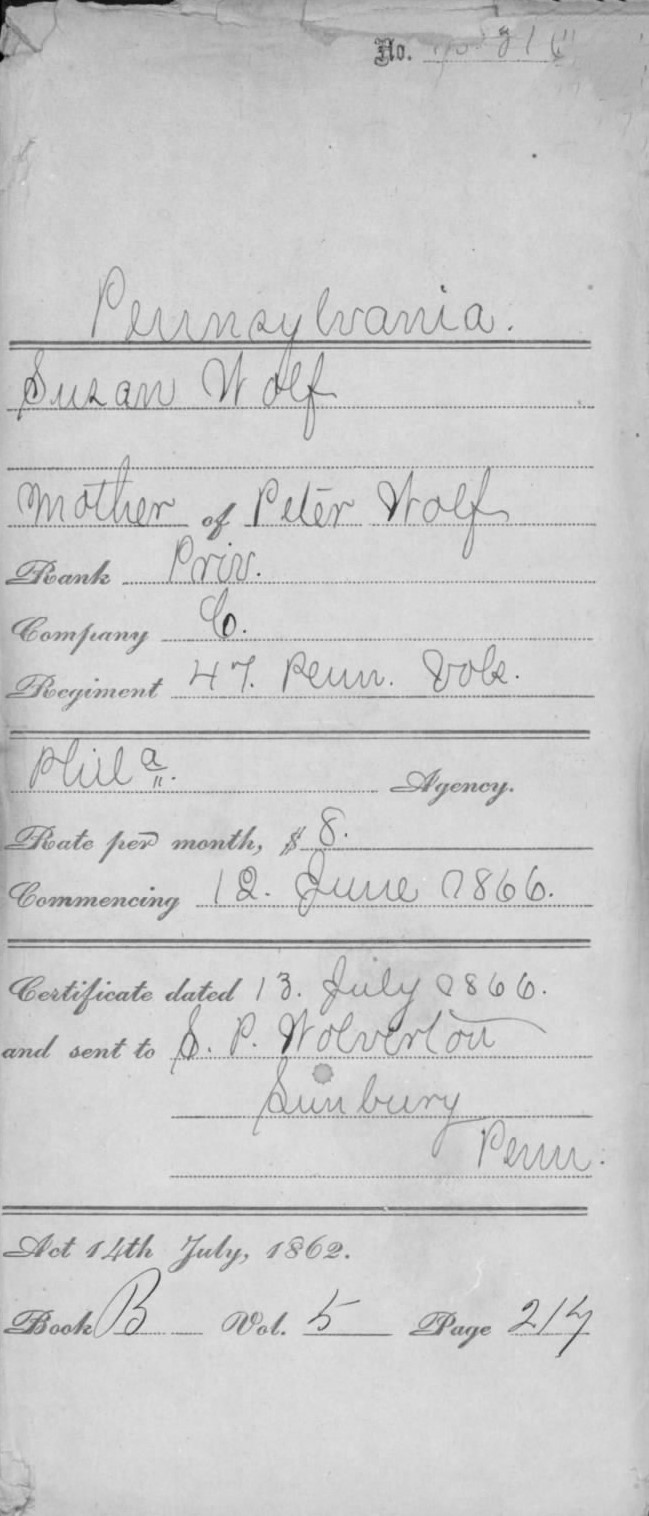 No.
Pennsylvania.
Susan Wolf
Mother of Peter Wolf
Rank Priv.
Company C.
Regiment 47. Penn. Vols.
Phila. Agency.
Rate per month, $ 8.
Commencing 12. June 1866.
Certificate dated 13. July 1866.
and sent to S. P. Wolverton
Sunbury
Penn.
Act 14th July, 1862.
Book B Vol. 5 Page